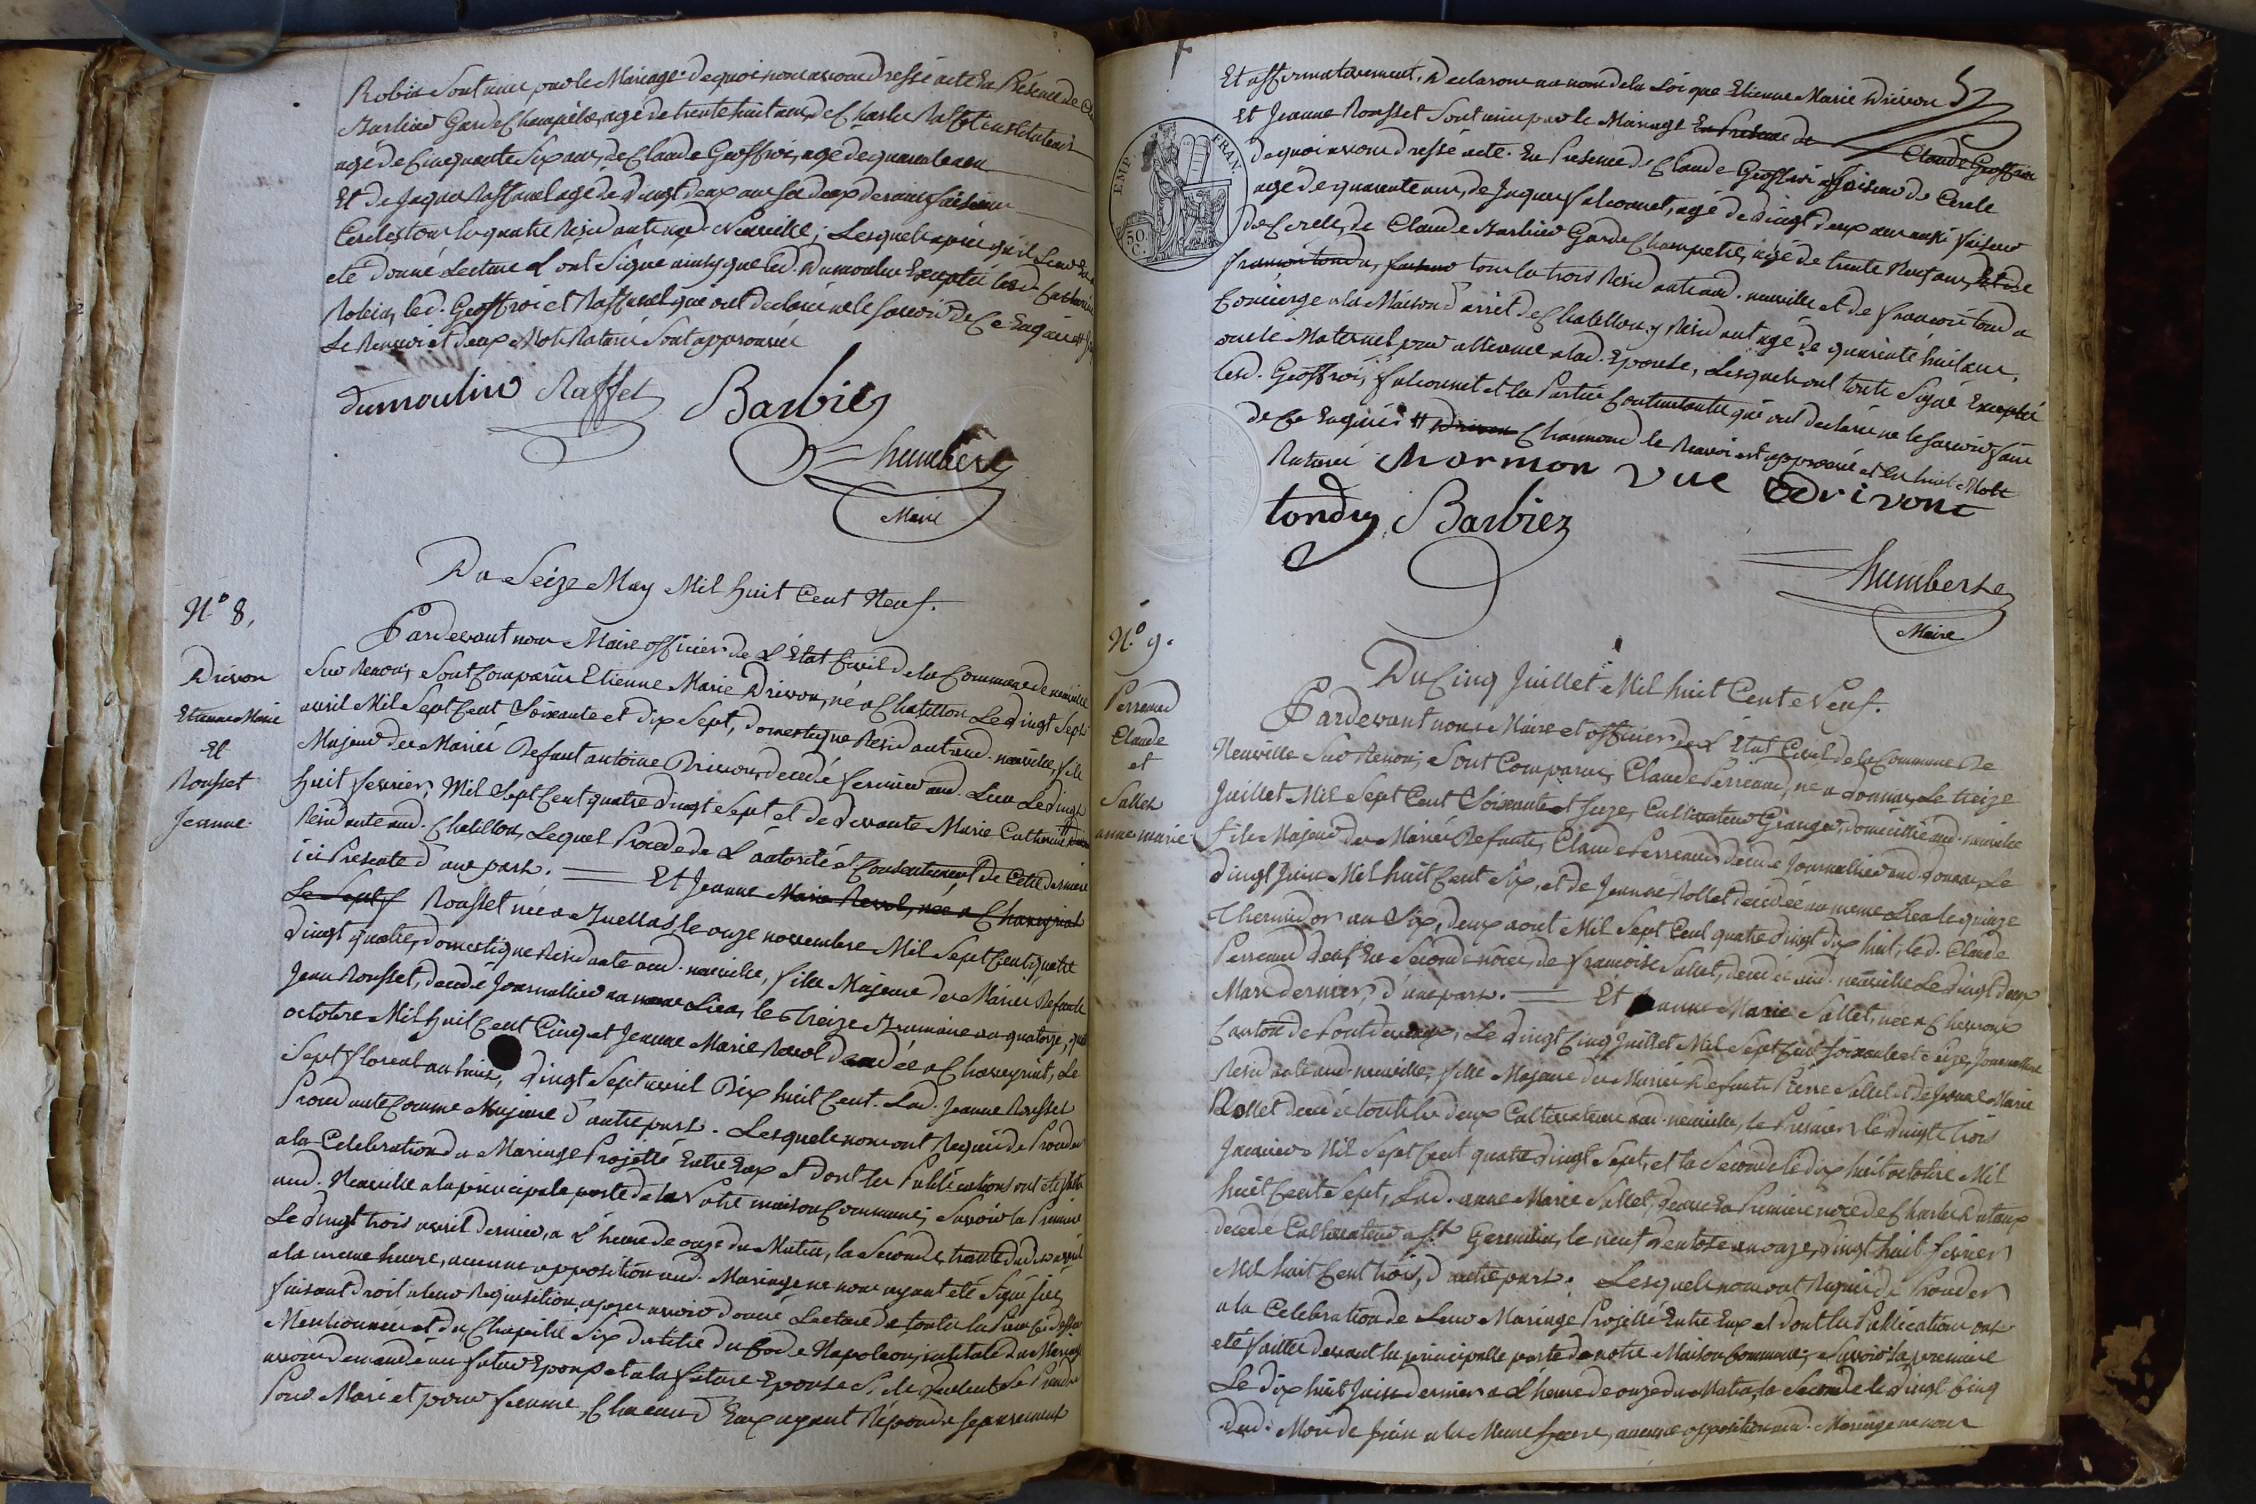 Robin Sont unis par le Mariage. de quoi nous avons dressé acte En Présence de
Barbier Garde Champêtre, agé de trente huit ans, de Charle Raffet instituteur
agé de Cinquante Six ans, de Claude Geoffroi, agé de quarante ans
Et de Jaque Raffanel agé de vingt deux ans Les deux derniers faiseurs
Cercles tous les quatre Residants aud. Neuville; Lesquels après qu'il Leur En a
eté donné Lecture L'ont Signé ainsy que led. Dumoulin Excepté lad. Catherine
Robin, led. Geoffroi et Raffanel qui ont declaré ne le Savoir de Ce Enquis
Le Renvoi et deux Mots Raturé Sont approuvés
dumoulin Raffet Barbier
humbert
Maire
Du Seize May Mil huit Cent Neuf.
N.° 8,
Drivon
Etienne Marie
Et
Rousset
Jeanne
Pardevant nous Maire officier de L'État Civil de la Commune de neuville
Sur Renon, Sont Comparus Etienne Marie Drivon, né a Chatillon Le vingt Sept
avril Mil Sept Cent Soixante et dix Sept, domestique Residant aud. neuville, fils
Majeur des Mariés Defunt antoine Drivon, decedé fermier aud. Lieu Le vingt
huit fevrier Mil Sept Cent quatre vingt Sept et de vivante Marie Catherine
Residante aud. Chatillon, Lequel Procede de L'autorité et Consentement de Cette derniere
ici Presente d'une part. Et Jeanne Marie Revol, née a Chaveyriat
Le Sept f Rousset née a Buellas, le onze novembre Mil Sept Cent quatre
vingt quatre, domestique Residante aud. neuville, fille Majeure des Mariés Defunts
Jean Rousset, decedé Journallier au meme Lieu, le treize Brumaire an quatorze, quatre
octobre Mil huit Cent Cinq et Jeanne Marie Revol decedée a Chaveyriat, Le
Sept floreal an huit, vingt Sept avril Dix huit Cent. Lad. Jeanne Rousset
Procedante Comme Majeure d'autre part. Lesquels nous ont Requis de Proceder
a la Celebration du Mariage Projetté Entre Eux et dont les Publications ont été faites
aud. Neuville a la principale porte de la Notre maison Commune; Savoir la Premiere
Le vingt trois avril dernier, a L'heure de onze du Matin, la Seconde, trente dud. avril
a la meme heure, aucune opposition aud. Mariage ne nous ayant eté Signifiée,
faisant droit a leur Requisition, après avoir donné Lecture de toutes les Pieces ci dessus
Mentionnées et du Chapitre Six du titre du Code Napoleon, intitulé du Mariage
avons demandé au futur Epoux et a la future Epouse S'ils Veulent Se Prendre
Pour Mari et pour femme, Chacun d'Eux ayant Répondu Separement
Et affirmativement, Declarons au nom de la Loi que Etienne Marie Drivon
Et Jeanne Rousset Sont unis par le Mariage En Presence de Claude Geoffroi
de quoi avons dressé acte. En Presence de Claude Geoffroi faiseur de Cercle
agé de quarante ans, de Jaques falconnet, agé de vingt deux ans aussi faiseur
de Cercle, de Claude Barbier Garde Champetre, agé de trente Neuf ans, Et de
francois tondu, faiseur tous les trois Residants aud. neuville et de francois tondu
Concierge a la Maison d'arrêt de Chatillon y Residant agé de quarante huit ans,
oncle Maternel pour alliance a lad. Epouse, Lesquels ont toute Signé Excepté
lesd. Geoffroi, falconnet et les Parties Contractantes qui ont declarés ne le Savoir faire
de Ce Enquis # Drivon Charmond le Renvoi est approuvé et les huit Mots
Raturés Mormon vue Drivont
tondu Barbier
humbert
Maire
EMP. FRAN.
50
C.
N.° 9.
Perreaud
Claude
et
Sallet
anne marie
Du Cinq Juillet Mil huit Cent Neuf.
Pardevant nous Maire et officier de L'État Civil de la Commune De
Neuville Sur Renon; Sont Comparus, Claude Perreaud, né a Jonnas, Le treize
Juillet Mil Sept Cent Soixante et Seize, Cultivateur Granger, domicilié aud. neuville
fils Majeur des Mariés Defunts, Claude Perreaud decedé Journallier aud. Le
vingt Juin Mil huit Cent Six, et de Jeanne Rollet decedée au meme Lieu le quinze
Thermidor an Six, deux aout Mil Sept Cent quatre vingt dix huit; led. Claude
Perreaud Veuf En Seconde nôces, de francoise Sallet, decedée aud. neuville Le vingt deux
Mars dernier, d'une part. Et anne Marie Sallet, née a Chevroux
Canton de Pont de vaux, Le vingt Cinq Juillet Mil Sept Cent Soixante et Seize, Journalliere
Residante aud. neuville; fille Majeure des Mariés Defunts Pierre Sallet et de Jeanne Marie
Rollet decedés touts les deux Cultivateurs aud. neuville, le Premier le vingt trois
Janvier Mil Sept Cent quatre vingt Sept, et la Seconde le dix huit octobre Mil
huit Cent Sept, Lad. anne Marie Sallet, veuve En Premiere noce de Charles
decedé Cultivateur a St. Germain, le neuf Ventose an onze, vingt huit fevrier
Mil huit Cent trois, d'autre part. Lesquels nous ont Requis de Proceder
a la Celebration de Leur Mariage Projetté Entre Eux et dont les Publications ont
eté faittes devant la principalle porte de notre Maison Commune; Savoir la premiere
Le dix huit Juin dernier a L'heure de onze du Matin, la Seconde le vingt Cinq
dud. Mois de Juin a la Meme heure, aucune opposition aud. Mariage ne nous